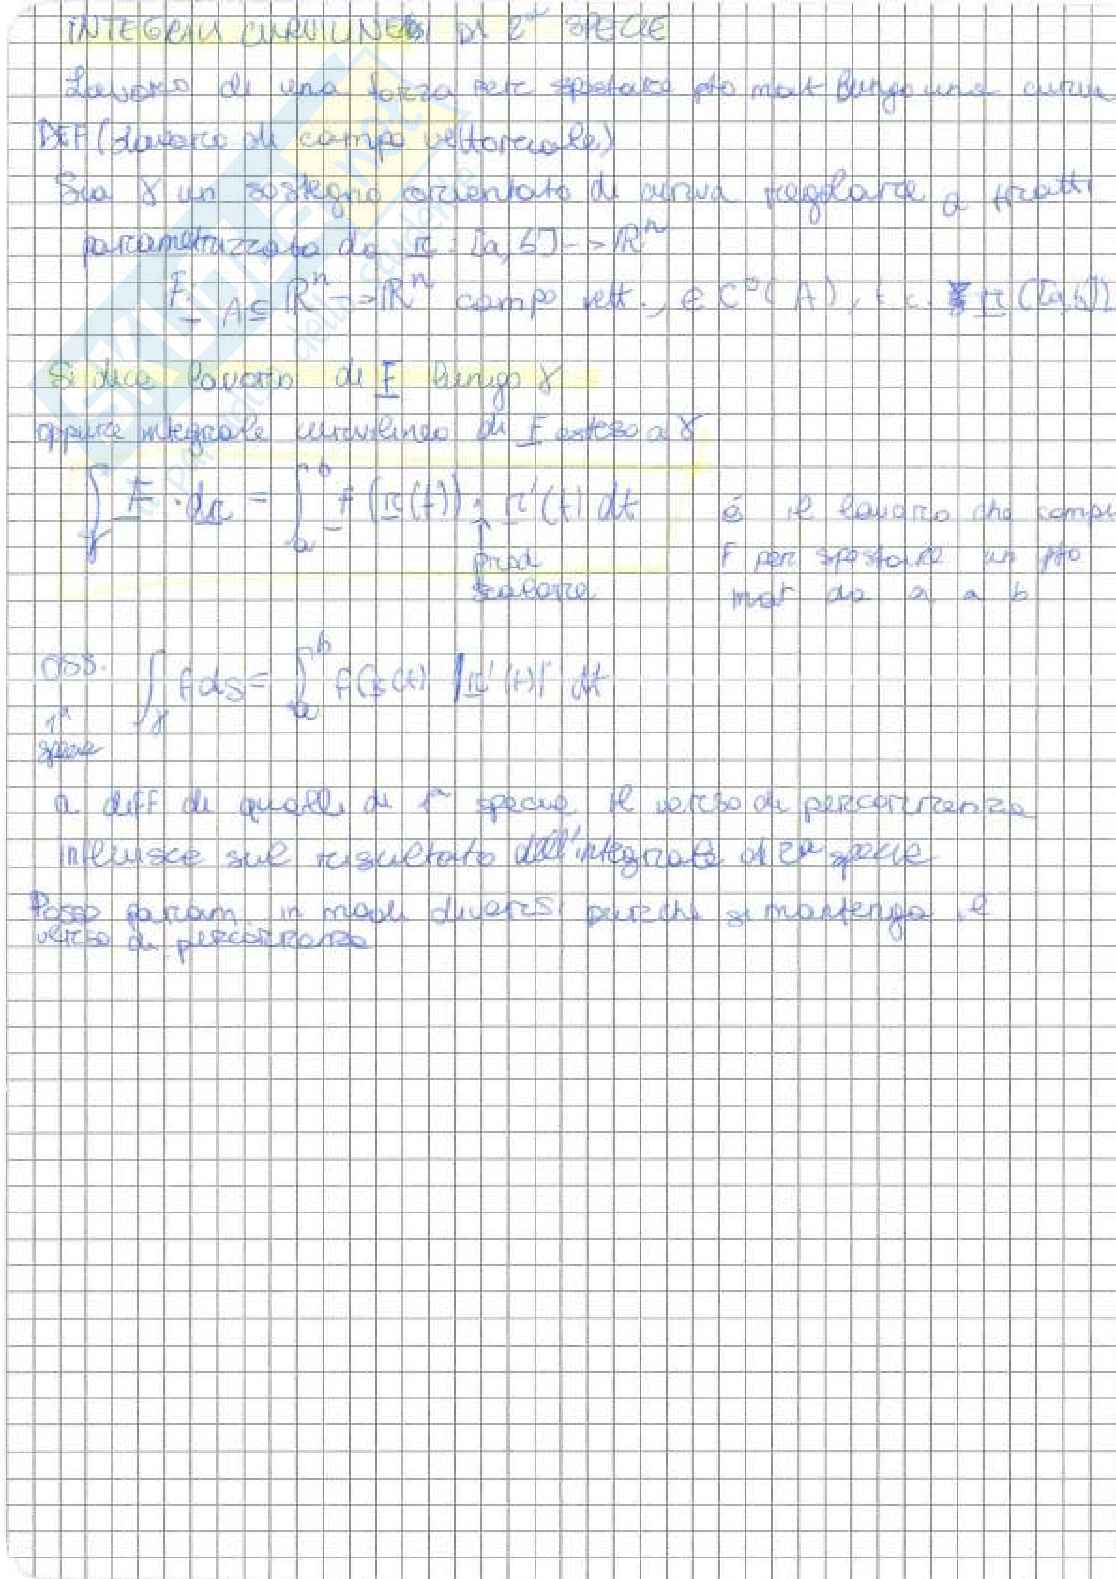 INTEGRALI CURVILINEI DI 2ª SPECIE
Lavoro di una forza per spostare pto mat lungo una curva
DEF (lavoro di campo vettoriale)
Sia γ un sostegno orientato di curva regolare a tratti
parametrizzata da r : [a,b] -> R^n
F : A ⊆ R^n -> R^n campo vett., ∈ C^0(A), t.c. r([a,b])
Si dice lavoro di F lungo γ
oppure integrale curvilineo di F esteso a γ
∫_γ F · dr = ∫_a^b F(r(t)) · r'(t) dt
prod
scalare
è il lavoro che compi
F per spostare un pto
mat da a a b
OSS. ∫_γ f ds = ∫_a^b f(r(t)) |r'(t)| dt
1ª
specie
a diff di quelli di 1ª specie il verso di percorrenza
influisce sul risultato dell'integrale di 2ª specie
Posso param. in modi diversi purché si mantenga il
verso di percorrenza
SKUOLA.net